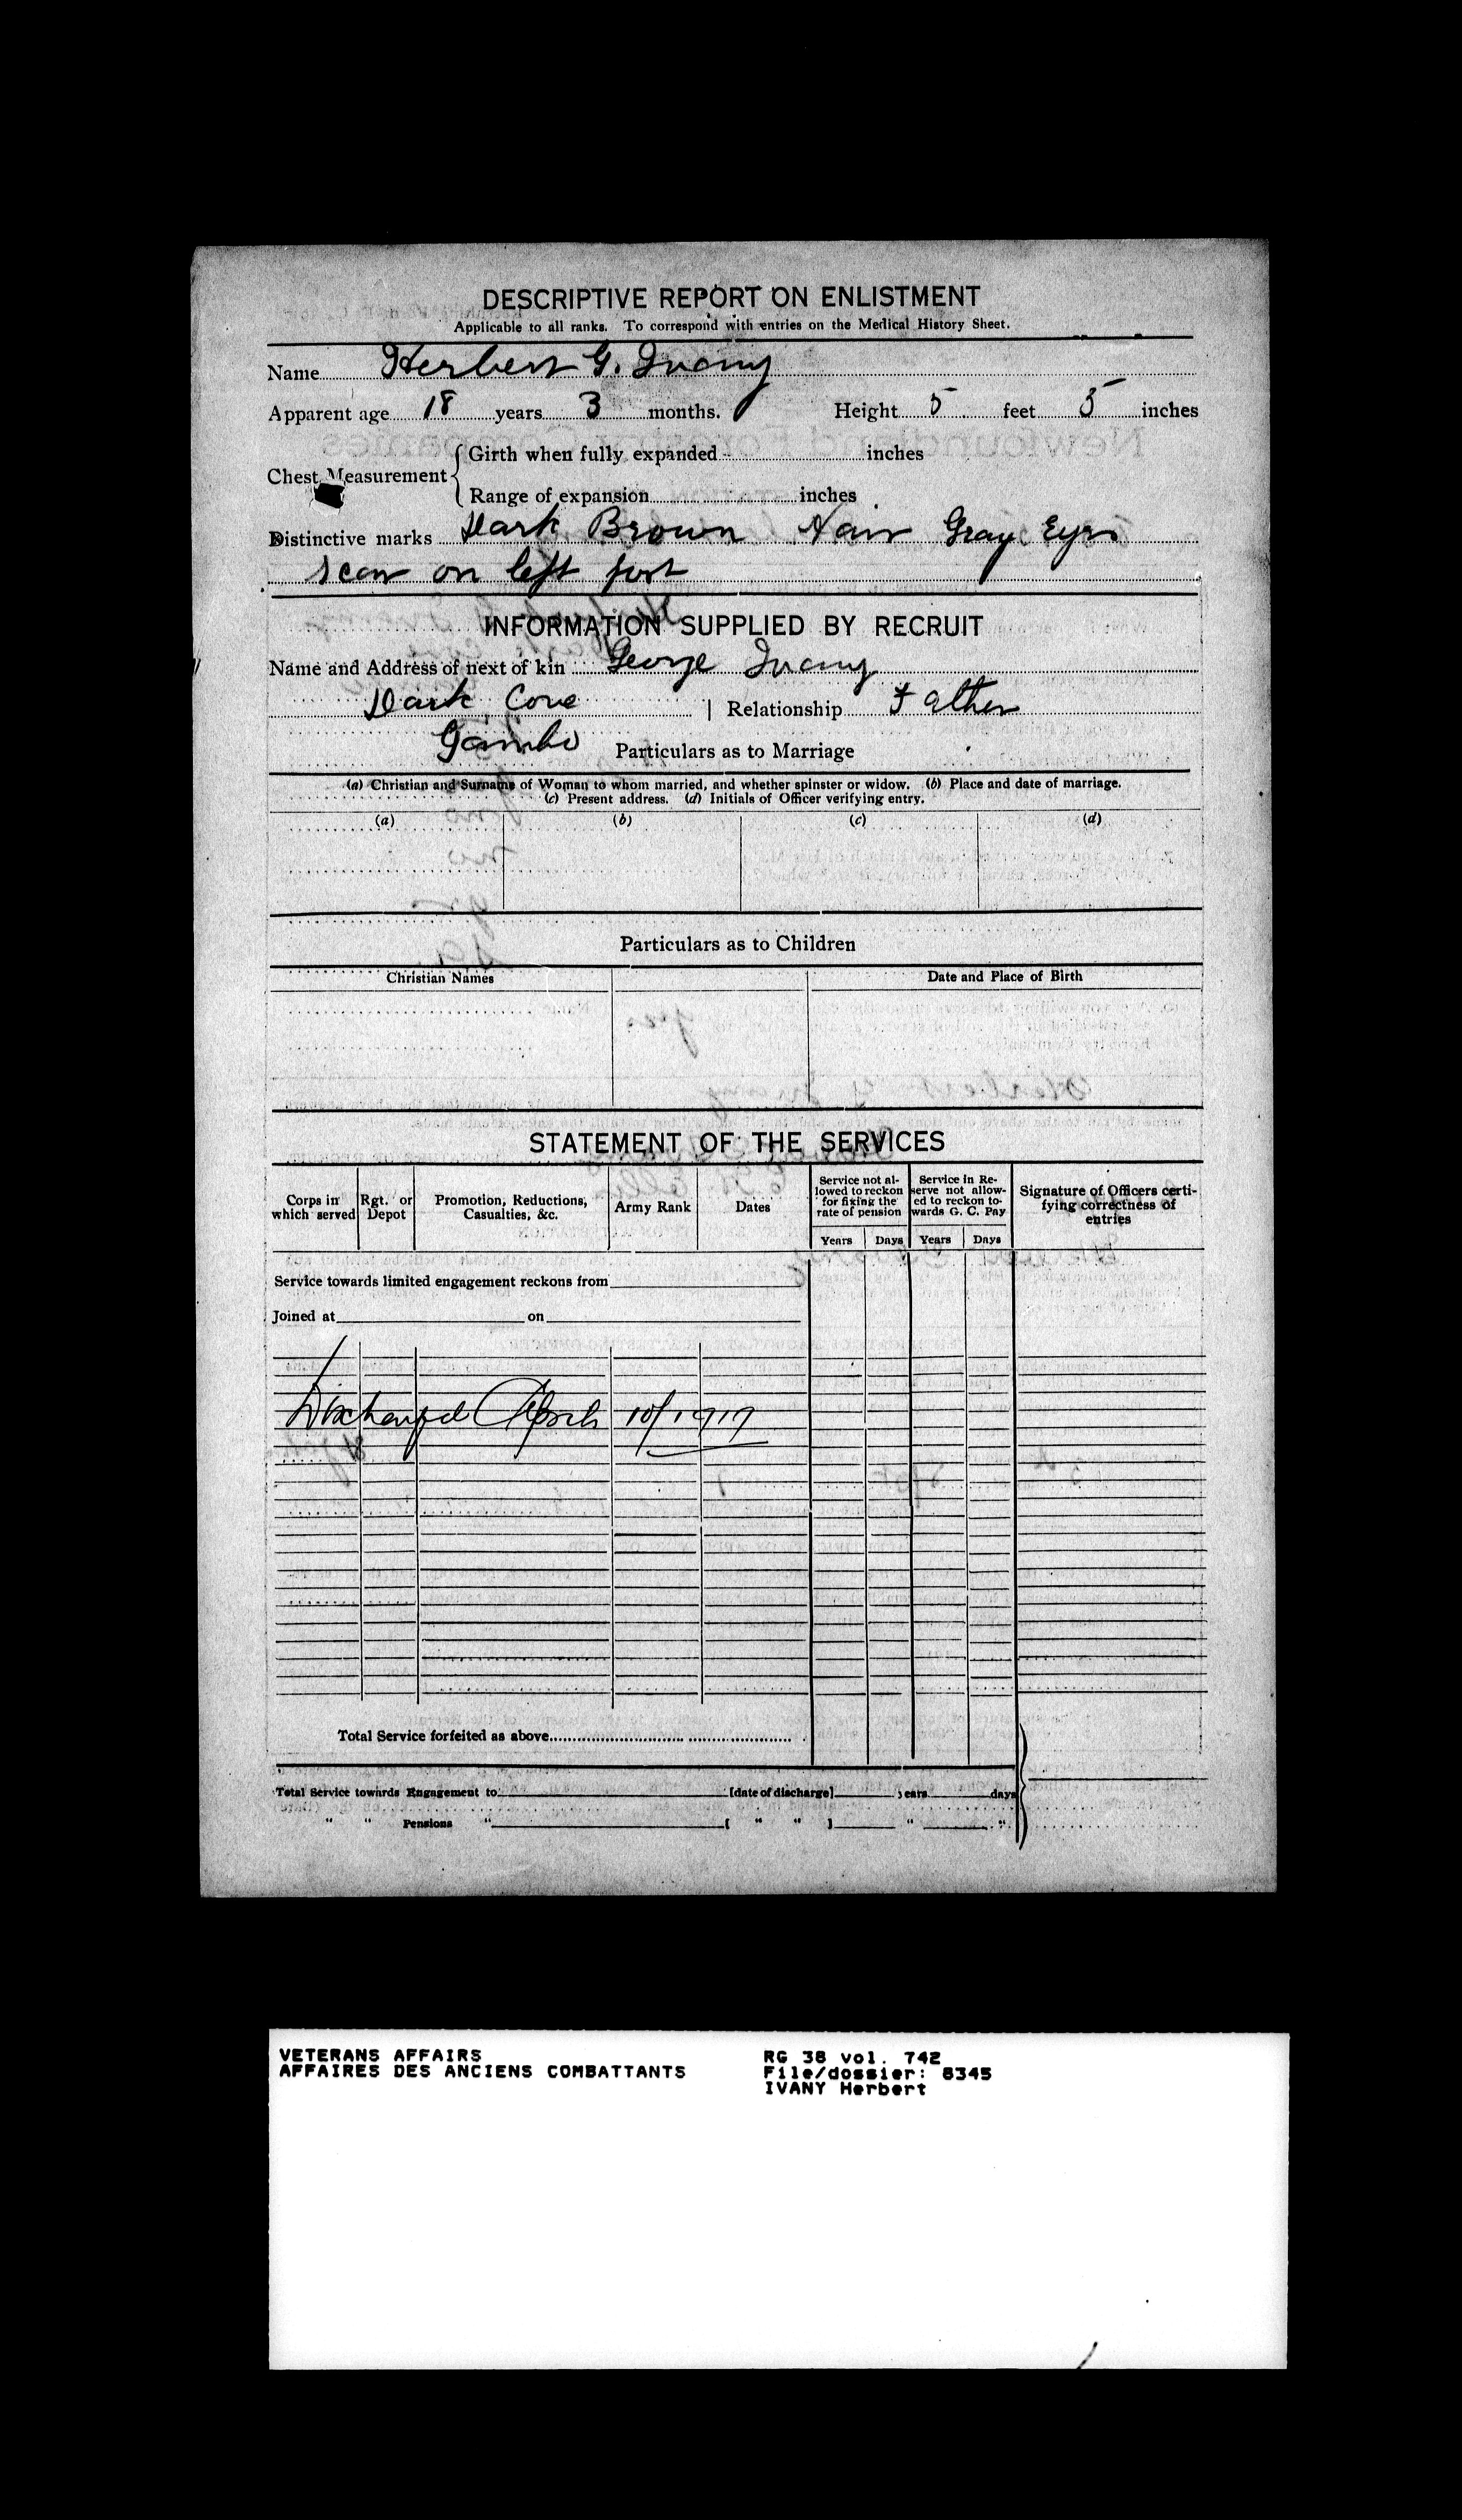 DESCRIPTIVE REPORT ON ENLISTMENT
Applicable to all ranks. To correspond with entries on the Medical History Sheet.
Name Herbert G. Ivany
Apparent age 18 years 3 months. Height 5 feet 5 inches
Chest Measurement
Girth when fully expanded inches
Range of expansion inches
Distinctive marks Dark Brown Hair Gray Eyes
scar on left foot
INFORMATION SUPPLIED BY RECRUIT
Name and Address of next of kin George Ivany
Dark Cove | Relationship Father
Gambo Particulars as to Marriage
(a) Christian and Surname of Woman to whom married, and whether spinster or widow. (b) Place and date of marriage.
(c) Present address. (d) Initials of Officer verifying entry.
(a) (b) (c) (d)
Particulars as to Children
Christian Names Date and Place of Birth
STATEMENT OF THE SERVICES
Corps in which served Rgt. or Depot Promotion, Reductions, Casualties, &c. Army Rank Dates Service not allowed to reckon for fixing the rate of pension Service in Reserve not allowed to reckon towards G. C. Pay Signature of Officers certifying correctness of entries
Years Days Years Days
Service towards limited engagement reckons from
Joined at on
Discharged April 10/1919
Total Service forfeited as above
Total Service towards Engagement to [date of discharge] years days
" " Pensions " [ " " ] " "
VETERANS AFFAIRS RG 38 vol. 742
AFFAIRES DES ANCIENS COMBATTANTS File/dossier: 8345
IVANY Herbert